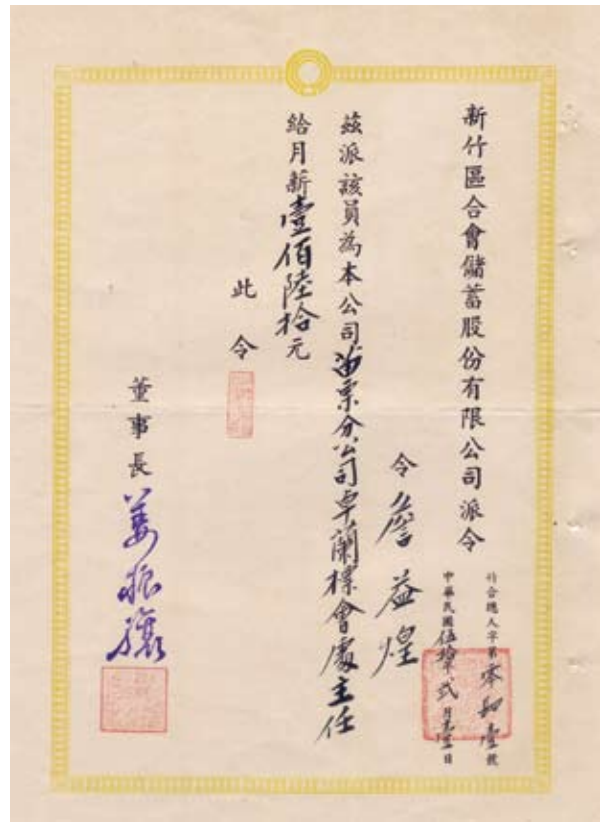 新竹區合會儲蓄股份有限公司派令
竹合總人字第零初壹號
中華民國伍拾年貳月 日
令 詹益煌
茲派該員為本公司苗栗分公司卓蘭標會處主任
給月薪壹佰陸拾元
此令
董事長 姜振驤